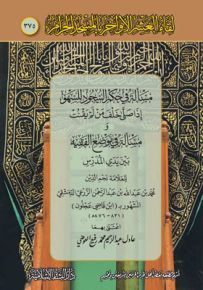 لقاء العشر الأواخر بالمسجد الحرام
٣٧٥
مسألة في حكم السجود للسهو
إذا صلى خلف من لم يقنت
و
مسألة في توضع الفقيه
بين يدي المدرس
للعلامة نجم الدين
محمد بن عبد الله بن عبد الرحمن الزرعي الدمشقي
الشهير بـ (ابن قاضي عجلون)
(٨٣١ - ٨٧٦هـ)
اعتنى بهما
دار البشائر الإسلامية